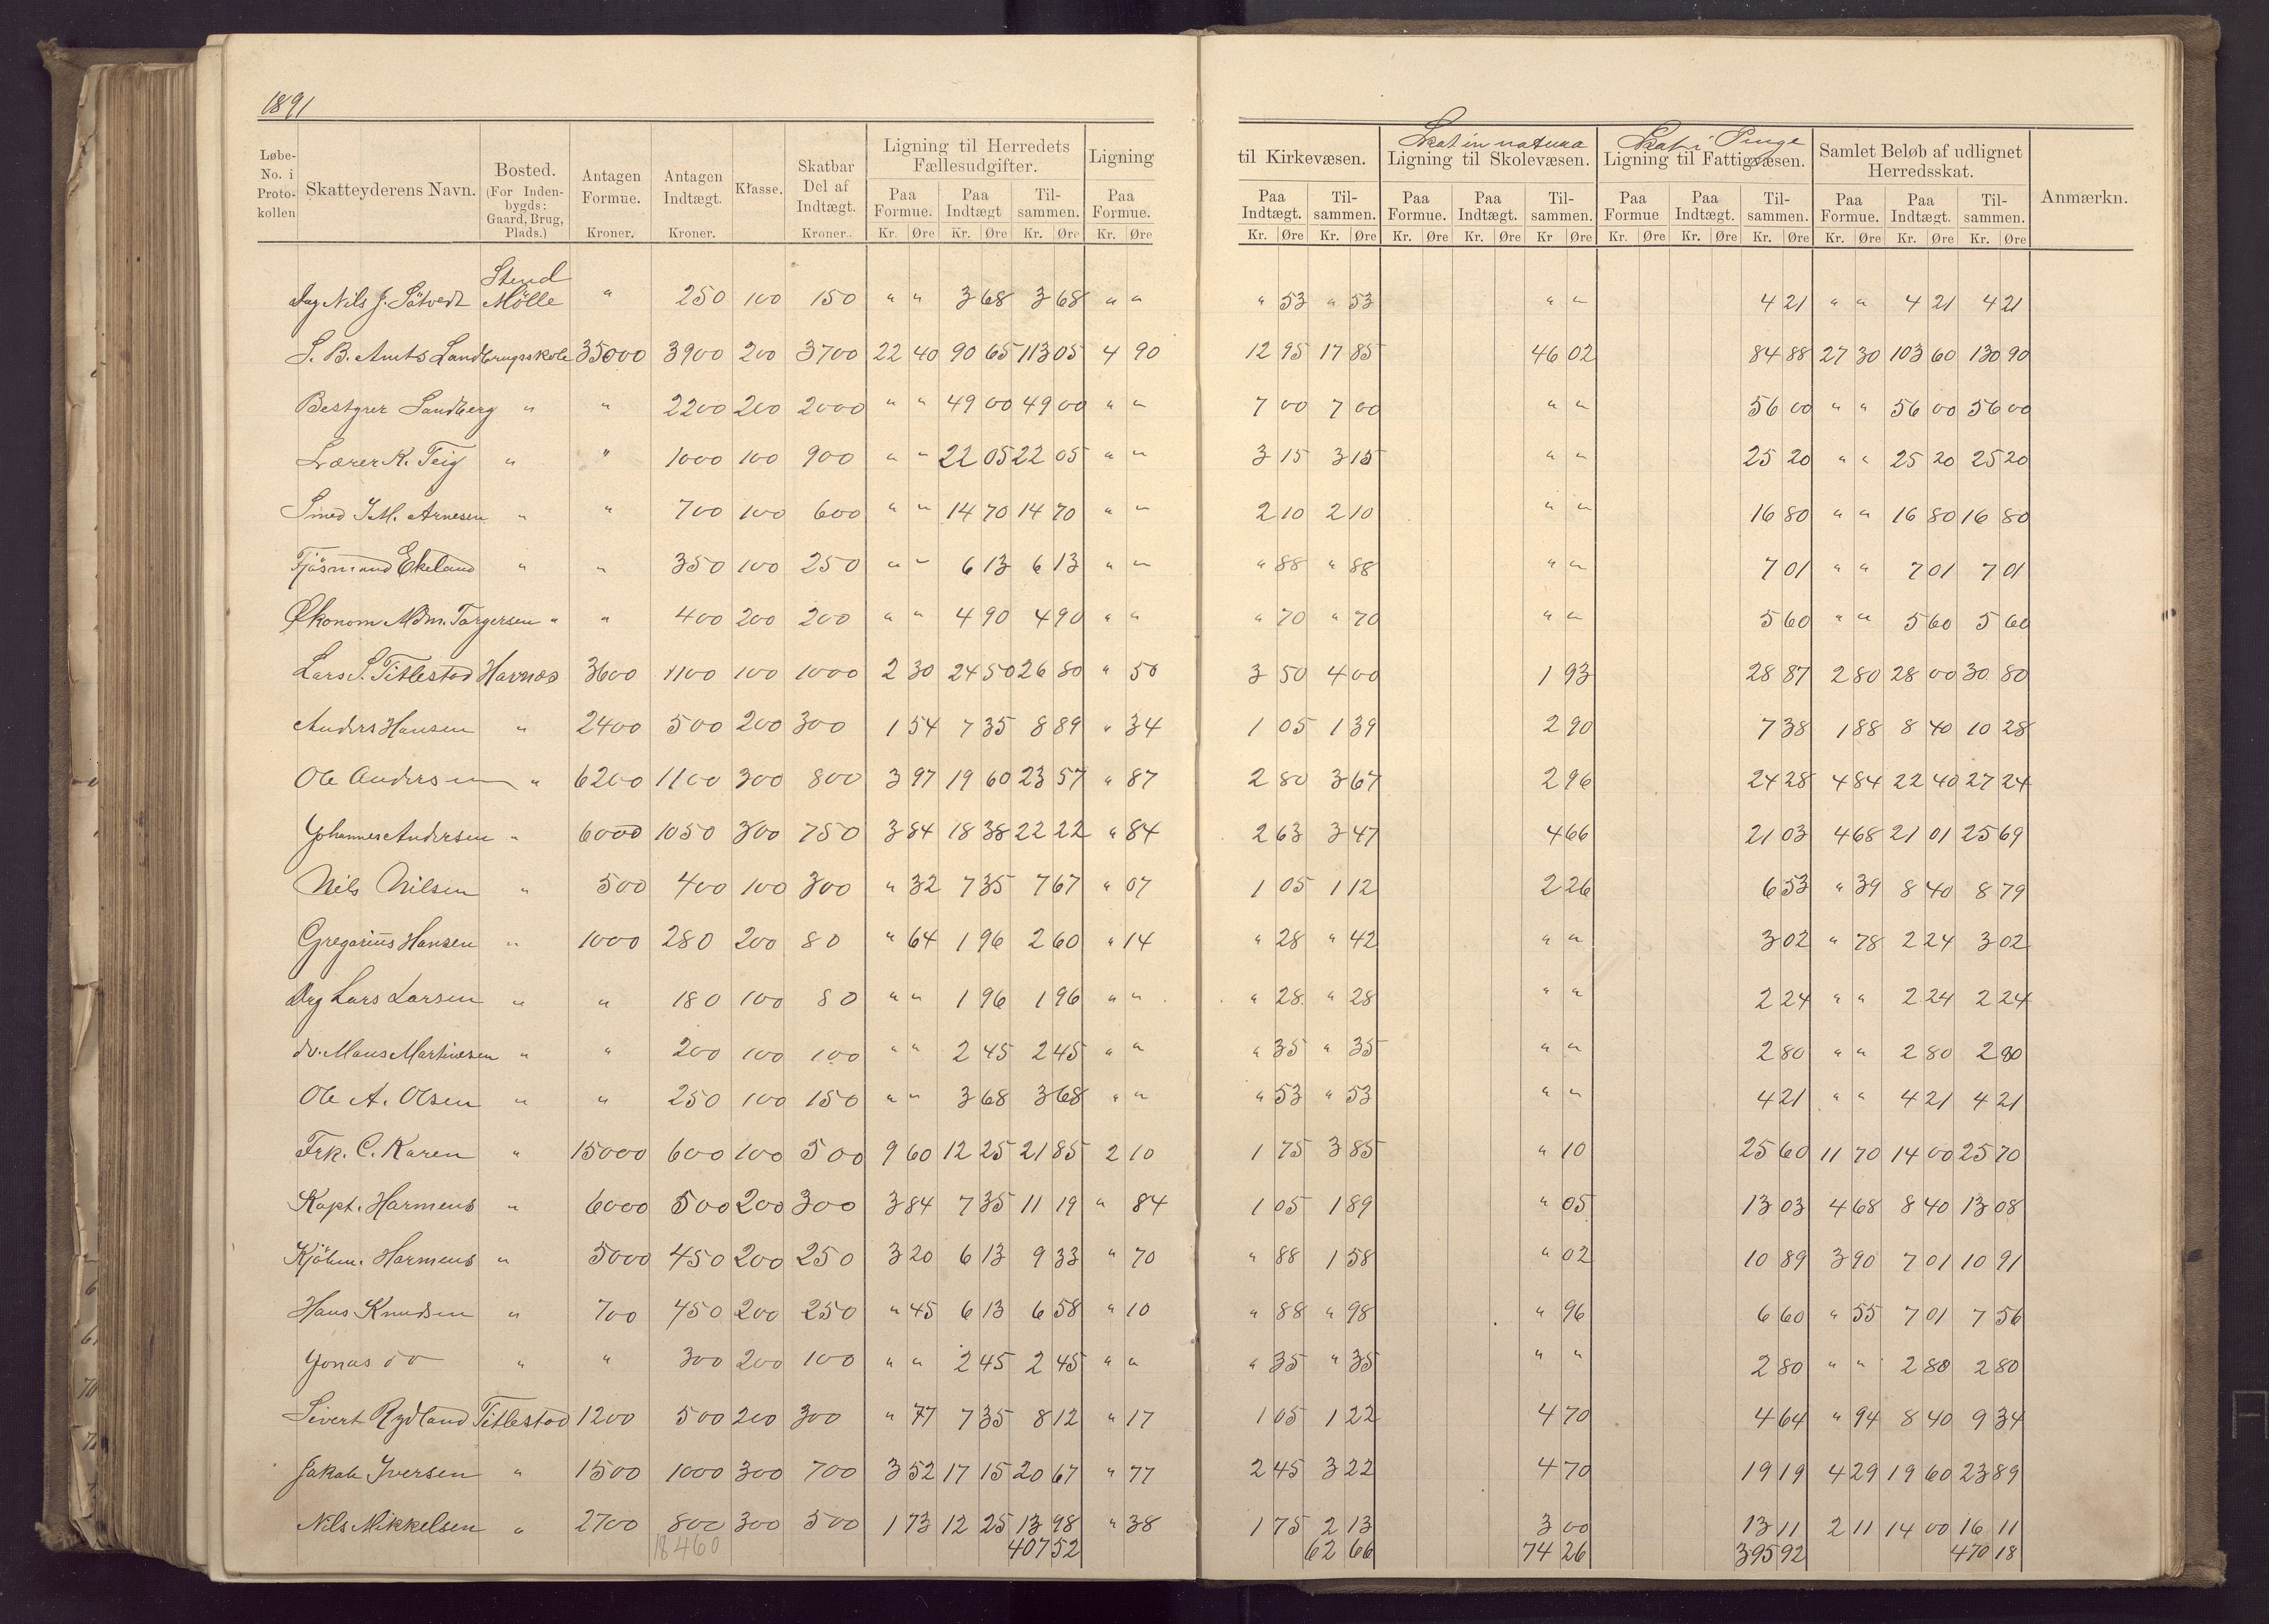 1891
Løbe-No. i Protokollen | Skatteyderens Navn. | Bosted. (For Indenbygds: Gaard, Brug, Plads.) | Antagen Formue. Kroner. | Antagen Indtægt. Kroner. | Klasse. | Skatbar Del af Indtægt. Kroner. | Ligning til Herredets Fællesudgifter. Paa Formue. Kr. Øre | Paa Indtægt Kr. Øre | Tilsammen. Kr. Øre | Ligning Paa Formue. Kr. Øre | til Kirkevæsen. Paa Indtægt. Kr. Øre | Tilsammen. Kr. Øre | Skat in natura Ligning til Skolevæsen. Paa Formue. Kr. Øre | Paa Indtægt. Kr. Øre | Tilsammen. Kr Øre | Skat i Penge Ligning til Fattigvæsen. Paa Formue Kr. Øre | Paa Indtægt. Kr. Øre | Tilsammen. Kr. Øre | Samlet Beløb af udlignet Herredsskat. Paa Formue. Kr. Øre | Paa Indtægt. Kr. Øre | Tilsammen. Kr. Øre | Anmærkn.
Dag Nils J. Sötvedt Stend Mölle " 250 100 150 " " 3 68 3 68 " " " 53 " 53 " " 4 21 " " 4 21 4 21
S. B. Amts Landbrugsskole 35000 3900 200 3700 22 40 90 65 113 05 4 90 12 95 17 85 46 02 84 88 27 30 103 60 130 90
Bestyrer Sandberg " " 2200 200 2000 " " 49 00 49 00 " " 7 00 7 00 " " 56 00 " " 56 00 56 00
Lærer K. Teig " " 1000 100 900 " " 22 05 22 05 " " 3 15 3 15 " " 25 20 " " 25 20 25 20
Smed J. M. Arnesen " " 700 100 600 " " 14 70 14 70 " " 2 10 2 10 " " 16 80 " " 16 80 16 80
Fjösmand Ekeland " " 350 100 250 " " 6 13 6 13 " " " 88 " 88 " " 7 01 " " 7 01 7 01
Økonom Mdm. Torgersen " " 400 200 200 " " 4 90 4 90 " " " 70 " 70 " " 5 60 " " 5 60 5 60
Lars S. Titlestad Havnæs 3600 1100 100 1000 2 30 24 50 26 80 " 50 3 50 4 00 1 93 28 87 2 80 28 00 30 80
Anders Hansen " 2400 500 200 300 1 54 7 35 8 89 " 34 1 05 1 39 2 90 7 38 1 88 8 40 10 28
Ole Andersen " 6200 1100 300 800 3 97 19 60 23 57 " 87 2 80 3 67 2 96 24 28 4 84 22 40 27 24
Johannes Andersen " 6000 1050 300 750 3 84 18 38 22 22 " 84 2 63 3 47 4 66 21 03 4 68 21 01 25 69
Nils Nilsen " 500 400 100 300 " 32 7 35 7 67 " 07 1 05 1 12 2 26 6 53 " 39 8 40 8 79
Gregarius Hansen " 1000 280 200 80 " 64 1 96 2 60 " 14 " 28 " 42 " " 3 02 " 78 2 24 3 02
Dag Lars Larsen " " 180 100 80 " " 1 96 1 96 " " " 28 " 28 " " 2 24 " " 2 24 2 24
do. Mans Martinesen " " 200 100 100 " " 2 45 2 45 " " " 35 " 35 " " 2 80 " " 2 80 2 80
Ole A. Olsen " " 250 100 150 " " 3 68 3 68 " " " 53 " 53 " " 4 21 " " 4 21 4 21
Frk. C. Karen " 15000 600 100 500 9 60 12 25 21 85 2 10 1 75 3 85 " 10 25 60 11 70 14 00 25 70
Kapt. Harmens " 6000 500 200 300 3 84 7 35 11 19 " 84 1 05 1 89 " 05 13 03 4 68 8 40 13 08
Kjöbm. Harmens " 5000 450 200 250 3 20 6 13 9 33 " 70 " 88 1 58 " 02 10 89 3 90 7 01 10 91
Hans Knudsen " 700 450 200 250 " 45 6 13 6 58 " 10 " 88 " 98 " 96 6 60 " 55 7 01 7 56
Jonas do " " 300 200 100 " " 2 45 2 45 " " " 35 " 35 " " 2 80 " " 2 80 2 80
Sivert Rydland Titlestad 1200 500 200 300 " 77 7 35 8 12 " 17 1 05 1 22 4 70 4 64 " 94 8 40 9 34
Jakob Iversen " 1500 1000 300 700 3 52 17 15 20 67 " 77 2 45 3 22 4 70 19 19 4 29 19 60 23 89
Nils Mikkelsen " 2700 800 300 500 1 73 12 25 13 98 " 38 1 75 2 13 3 00 13 11 2 11 14 00 16 11
18460 407 52 62 66 74 26 395 92 470 18